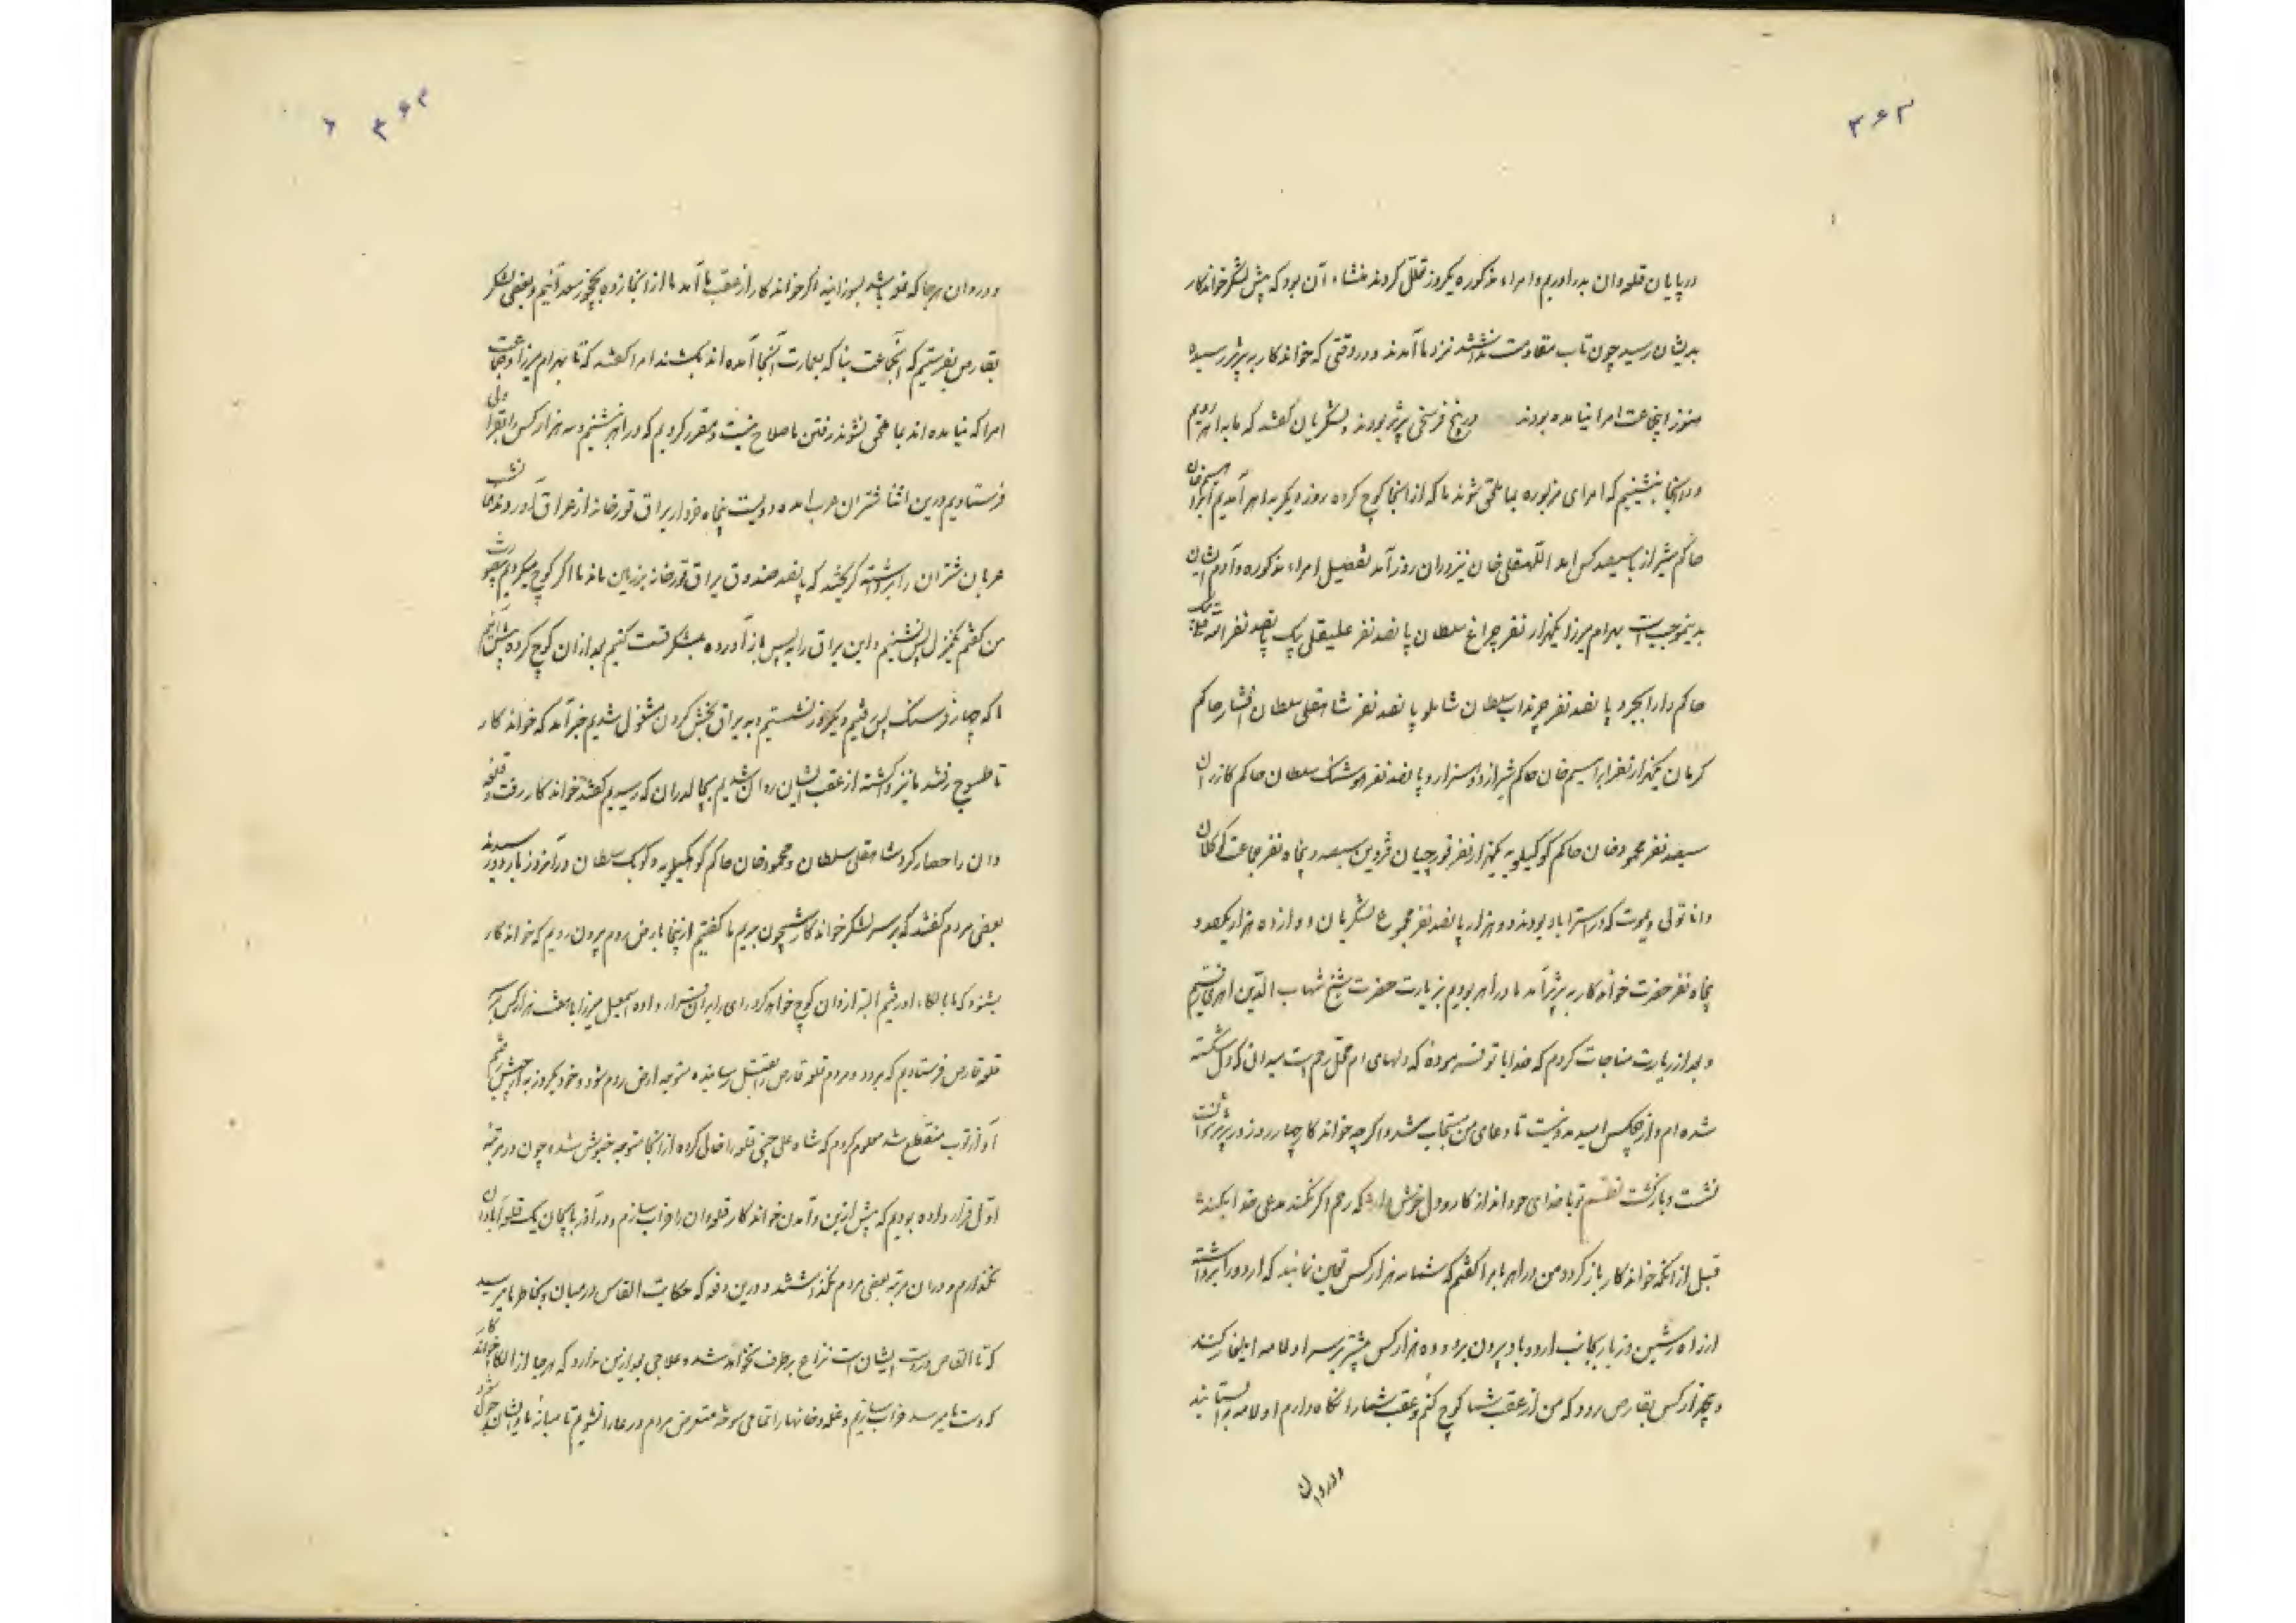 ۳۶۳
در پایان قلعه وان بدر اوریم و امراء مذکوره یکروز تعلل کردند منشاء آن بود که پیش لشکر خواندکار
بدیشان رسید چون تاب مقاومت نداشتند نزد ما آمدند و در وقتی که خواندکار به تبریز رسیده
هنوز اینجماعت امرا نیامده بودند در پنج فرسخی تبریز بودند لشکریان گفتند که ما به اهر رویم
و در آنجا بنشینیم که امرای مزبوره بما ملحق شوند ما که از انجا کوچ کرده روز دیگر به اهر آمدیم ابراهیم خان
حاکم شیراز با سیصد کس امد اللهقلی خان نیز در ان روز آمد تفصیل امراء مذکوره و آدم ایشان
بدینموجب است بهرام میرزا یکهزار نفر چراغ سلطان پانصد نفر علیقلی بیک پانصد نفر
حاکم دارابجرد پانصد نفر چرنداب سلطان شاملو پانصد نفر شاهقلی سلطان افشار حاکم
کرمان یکهزار نفر ابراهیم خان حاکم شیراز دو هزار و پانصد نفر هوشنک سلطان حاکم کازران
سیصد نفر محمود خان حاکم کوه کیلویه یکهزار نفر قورچیان قزوین سیصد و پنجاه نفر جماعت کوکلان
و اناتولی و یموت که در استراباد بودند دو هزار پانصد نفر مجموع لشکریان دوازده هزار و یکصد و
پنجاه نفر حضرت خواندکار به تبریز آمد ما در اهر بودیم بزیارت حضرت شیخ شهاب الدین اهری رفتیم
و بعد از زیارت مناجات کردم که خدایا تو فرموده که دلهای ام محل رحم است میدانی که دل شکسته
شده ام و از هیچکس امید مدد نیست تا دعای من مستجاب شد و اگرچه خواندکار چهار روز در تبریز توانست
نشست و بازگشت نظم تو با خدای خود انداز کار و دل خوش دار که رحم اگر نکند مدعی خدا بکند
قبل از انکه خواندکار باز گردد من در اهر بامرا گفتم که شما سه هزار کس تعیین نمائید که اردو را برداشته
از راه مشکین و زیار بجانب اردوباد بیرون برد و ده هزار کس پیشتر بر سر اولامه ایلغار کنند
و پنجهزار کس بقارص رود که من از عقب شما کوچ کنم و عقب شما را نکاه دارم اولامه بر
و در وان
۳۶۴
و در وان هرجا که غله باشد بسوزانید اگر خواندکار از عقب ما آمد ما از انجا زده به نخجوز سعد آئیم و بعضی لشکر
بقارص بفرستیم که آنجماعت بنا که بعمارت آنجا آمده اند بکشند امرا گفتند که تا بهرام میرزا و جماعت
امرا که نیامده اند بما ملحق نشوند رفتن ما صلاح نیست و مقرر کردیم که در اهر بنشینیم و سه هزار کس را بقراولی
فرستادیم درین اثنا شتران عرب امده دویست پنجاه خروار یراق قورخانه از عراق آوردند
عربان شتران را برداشته گریختند که پانصد صندوق یراق قورخانه بزمین ماند ما اگر کوچ میکردیم
من گفتم یکمنزل پس نشینیم و این یراق را به پس باز آورده بلشکر قسمت کنیم بعد از ان کوچ کرده پیش آییم
ما که چهار فرسنک پس رفتیم و یکروز نشستیم و به یراق بخش کردن مشغول شدیم خبر آمد که خواندکار
تا طسوج رفتند ما نیز گشته از عقب ایشان روان شدیم بچالدران که رسیدیم گفتند خواندکار رفت و قلعه
وان را حصار کرد شاهقلی سلطان و محمود خان حاکم کوه کیلویه و کوبک سلطان در آنروز باردو رسیدند
بعضی مردم گفتند که بر سر لشکر خواندکار شبیخون بریم ما گفتیم از اینجا بارض روم بیرون رویم که خواندکار
بشنود که ما بالکاء او رفتیم البته از وان کوچ خواهد کرد رای را بر ان قرار داده اسمعیل میرزا با هفت هزار کس بر سر
قلعه قارص فرستادیم که برود و مردم قلعه قارص را بقتل رسانیده متوجه ارض روم شود و خود یکروز به ارجیش رفتیم
آواز توپ منقطع شد معلوم کردم که شاه علی چپنی قلعه را خالی کرده از انجا متوجه خنوش شده چون در مرتبه
اول قرار داده بودیم که پیش ازین و آمدن خواندکار قلعه وان را خراب سازم و در آذربایجان یک قلعه آبادان
نگذارم و در ان مرتبه بعضی مردم نگذاشتند و درین دفعه که حکایت القاس در میان بود بخاطر ما میرسید
که تا القاص در دست ایشان است نزاع برطرف نخواهد شد و علاجی بجز این ندارد که هر جا از الکاء خواندکار
که دست ما میرسد خراب سازیم و غله و خانها را تمامی سوخته متعرض مردم و رعایا نشویم تا میانه ما و ایشان چول شود